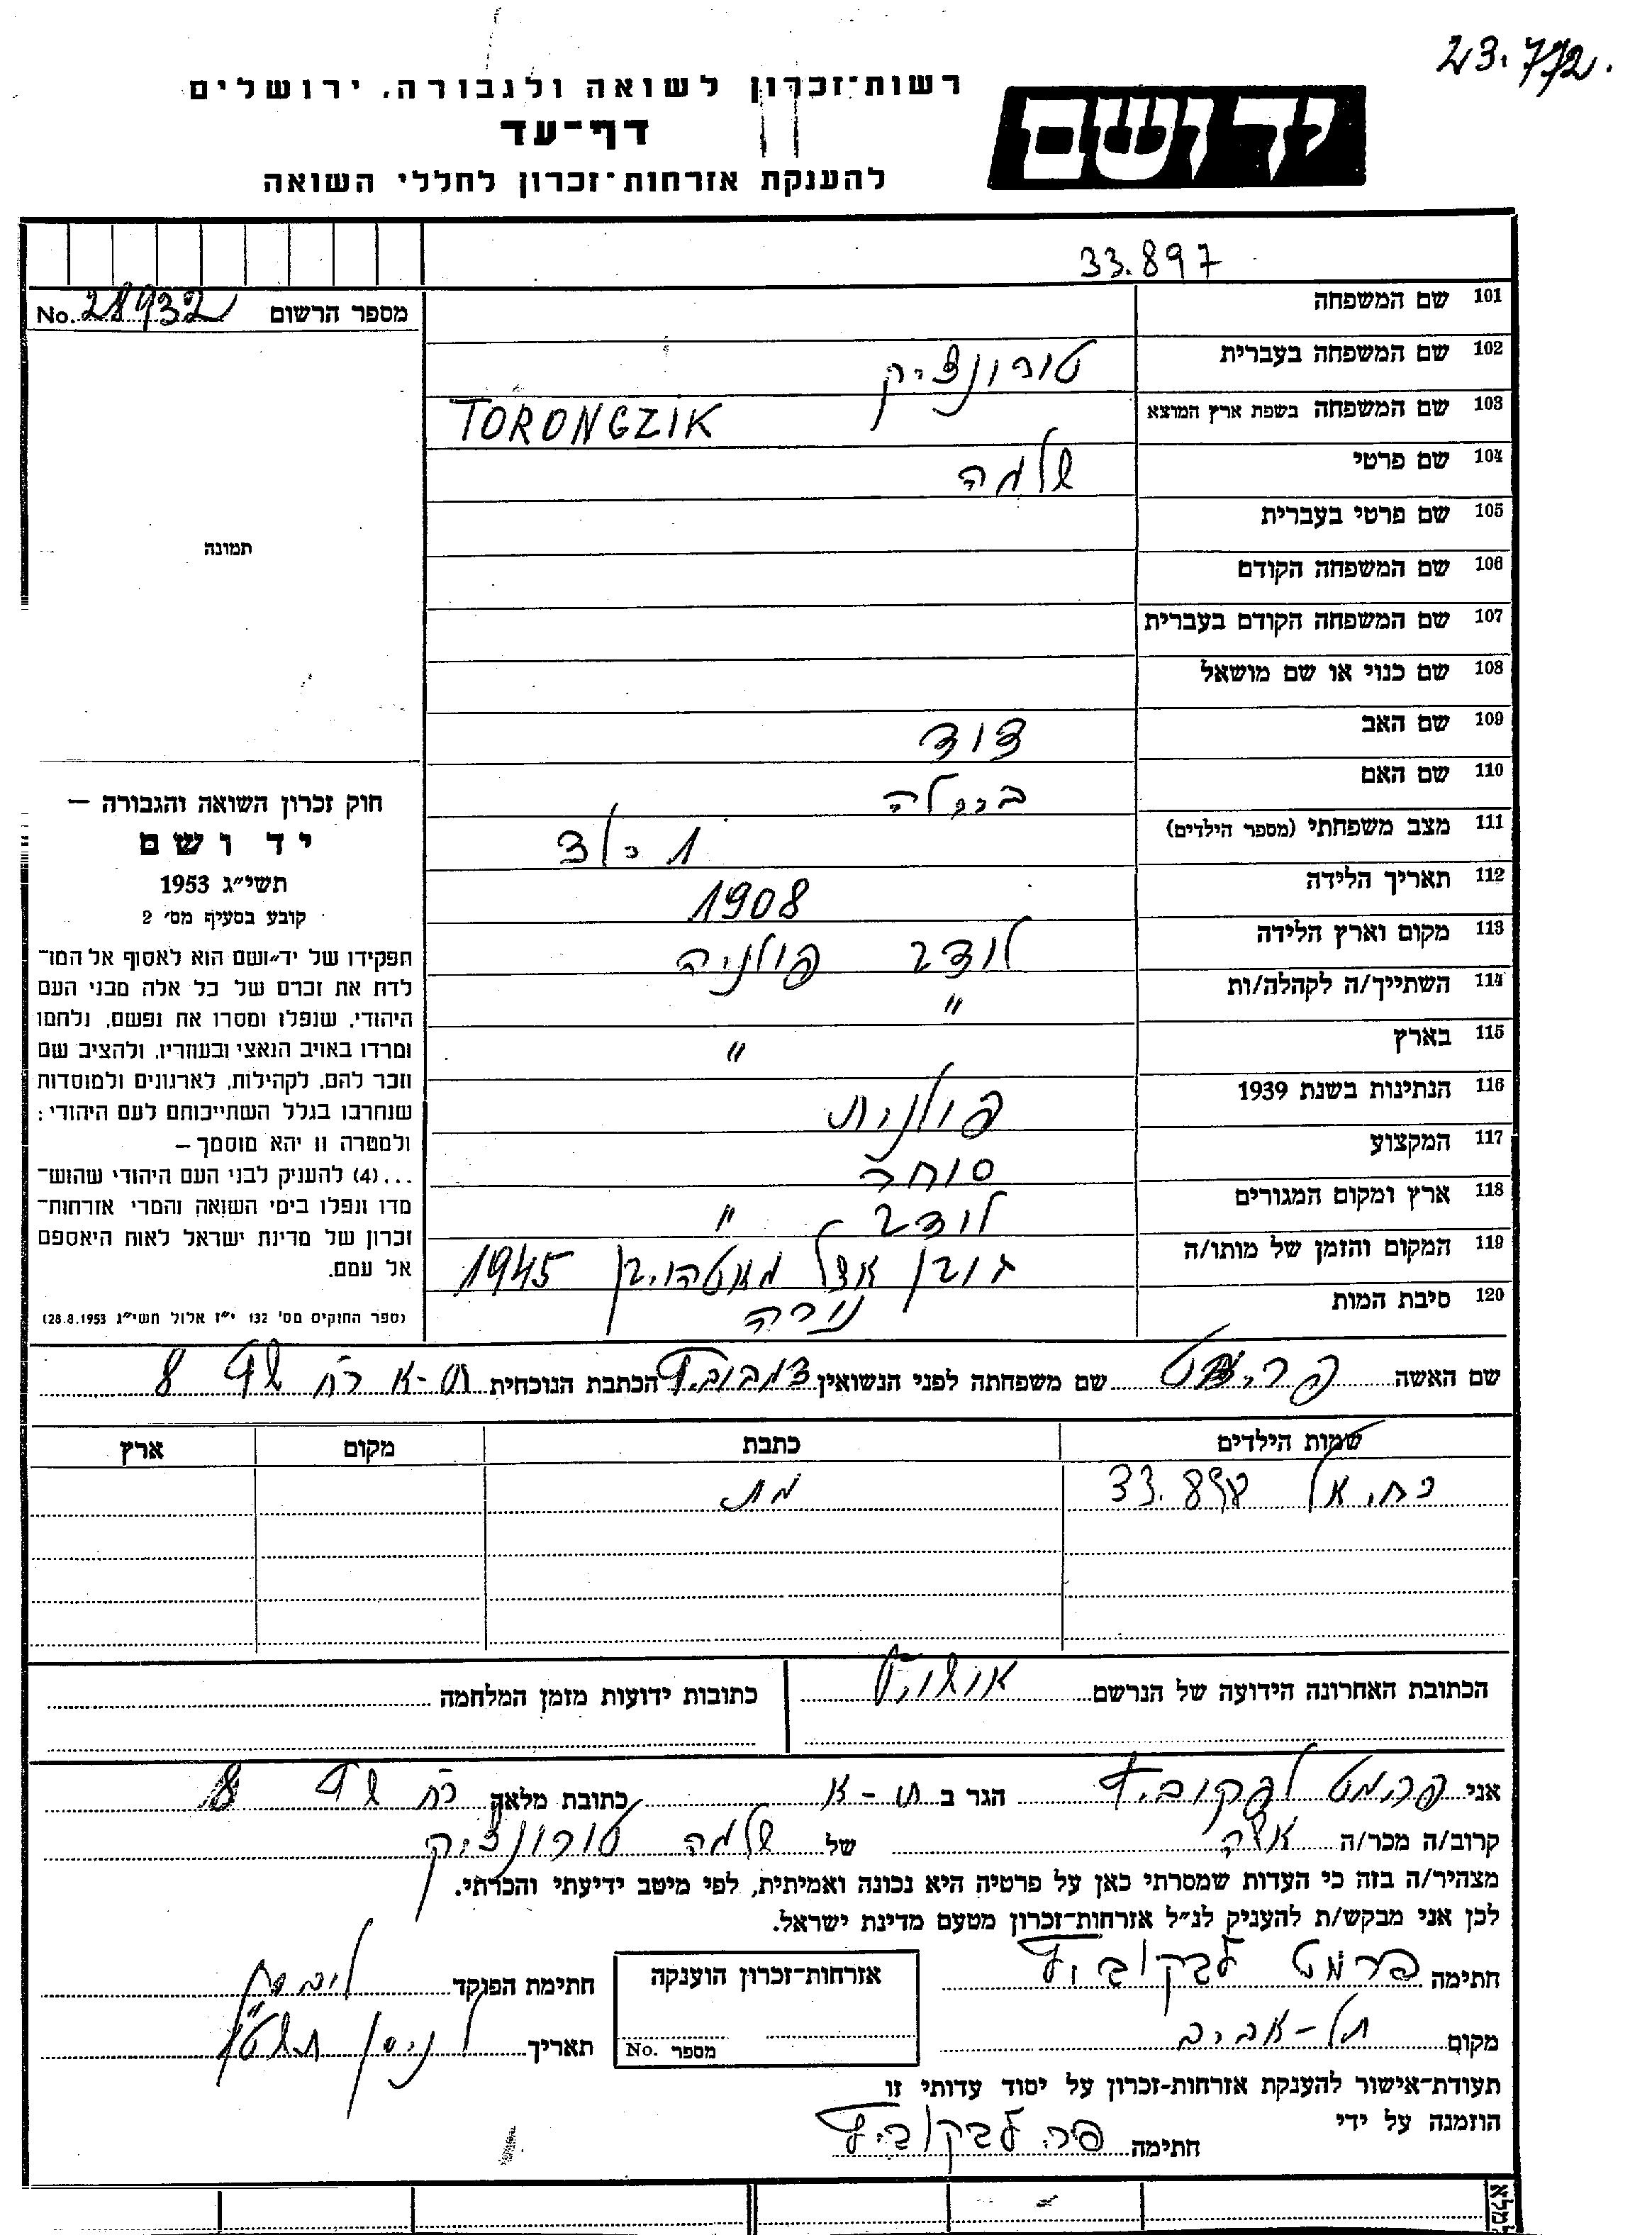 23.772.
רשות־זכרון לשואה ולגבורה, ירושלים
דף־עד
להענקת אזרחות־זכרון לחללי השואה
יד ושם
33.897
מספר הרשום No. 28932
101 שם המשפחה
102 שם המשפחה בעברית טורונציק
103 שם המשפחה בשפת ארץ המוצא TORONCZIK
104 שם פרטי שלמה
105 שם פרטי בעברית
תמונה
106 שם המשפחה הקודם
107 שם המשפחה הקודם בעברית
108 שם כנוי או שם מושאל
109 שם האב דוד
110 שם האם ביילה
111 מצב משפחתי (מספר הילדים) 1 ילד
112 תאריך הלידה 1908
113 מקום וארץ הלידה לודב פולניה
114 השתייך/ה לקהלה/ות "
115 בארץ "
116 הנתינות בשנת 1939 פולנית
117 המקצוע סוחר
118 ארץ ומקום המגורים לודב "
119 המקום והזמן של מותו/ה אצל 1945
120 סיבת המות נורה
חוק זכרון השואה והגבורה –
יד ושם
תשי״ג 1953
קובע בסעיף מס׳ 2
תפקידו של יד־ושם הוא לאסוף אל המו־
לדת את זכרם של כל אלה מבני העם
היהודי, שנפלו ומסרו את נפשם, נלחמו
ומרדו באויב הנאצי ובעוזריו, ולהציב שם
וזכר להם, לקהילות, לארגונים ולמוסדות
שנחרבו בגלל השתייכותם לעם היהודי;
ולמטרה זו יהא מוסמך –
...(4) להעניק לבני העם היהודי שהוש־
מדו ונפלו בימי השואה והמרי אזרחות־
זכרון של מדינת ישראל לאות היאספם
אל עמם.
(ספר החוקים מס׳ 132 י״ז אלול תשי״ג 28.8.1953)
שם האשה שם משפחתה לפני הנשואין הכתבת הנוכחית ת-א רח 8
שמות הילדים כתבת מקום ארץ
יחיאל 33.898 מת
הכתובת האחרונה הידועה של הנרשם כתובות ידועות מזמן המלחמה
אני הגר ב ת-א כתובת מלאה רח 8
קרוב/ה מכר/ה של שלמה טורונציק
מצהיר/ה בזה כי העדות שמסרתי כאן על פרטיה היא נכונה ואמיתית, לפי מיטב ידיעתי והכרתי.
לכן אני מבקש/ת להעניק לנ״ל אזרחות־זכרון מטעם מדינת ישראל.
חתימה אזרחות־זכרון הוענקה חתימת הפוקד
מקום תל-אביב מספר No. תאריך ניסן
תעודת־אישור להענקת אזרחות־זכרון על יסוד עדותי זו
הוזמנה על ידי
חתימה